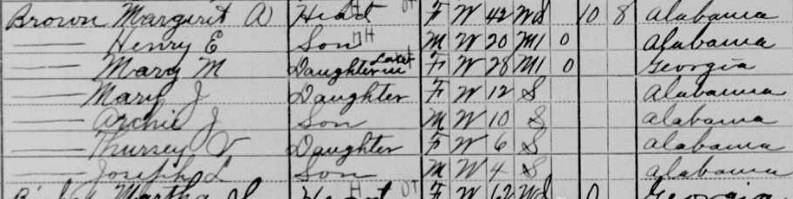 Brown Margirit A Head F W 42 Wd 10 8 Alabama
— Henry E Son M W 20 M1 0 Alabama
— Mary M Daughter in Law F W 28 M1 0 Georgia
— Mary J Daughter F W 12 S Alabama
— Archie J Son M W 10 S Alabama
— Thursey V Daughter F W 6 S Alabama
— Joseph L Son M W 4 S Alabama
Martha F W 62 Wd 0 Georgia